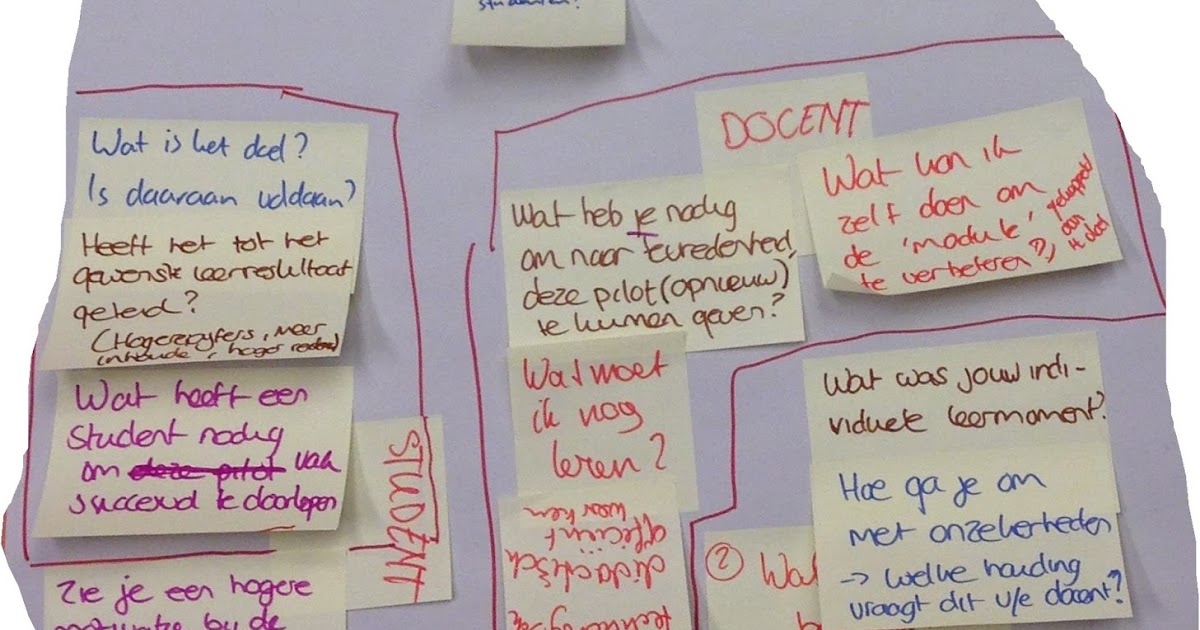 studenten?
Wat is het doel?
Is daaraan voldaan?
Heeft het tot het
gewenste leerresultaat
geleid?
(Hogere cijfers, meer
inhoude, hoger
Wat heeft een
student nodig
om deze pilot vak
succesvol te doorlopen
STUDENT
Zie je een hogere
motivatie bij de
DOCENT
Wat heb je nodig
om naar tevredenheid
deze pilot (opnieuw)
te kunnen geven?
Wat kan ik
zelf doen om
de 'module', gekoppeld
aan
te verbeteren?, doel
Wat moet
ik nog
leren?
technologisch
didactisch
efficiënt
werken
Wat was jouw indi-
viduele leermoment?
Hoe ga je om
met onzekerheden
-> welke houding
vraagt dit v/e docent?
② Wat